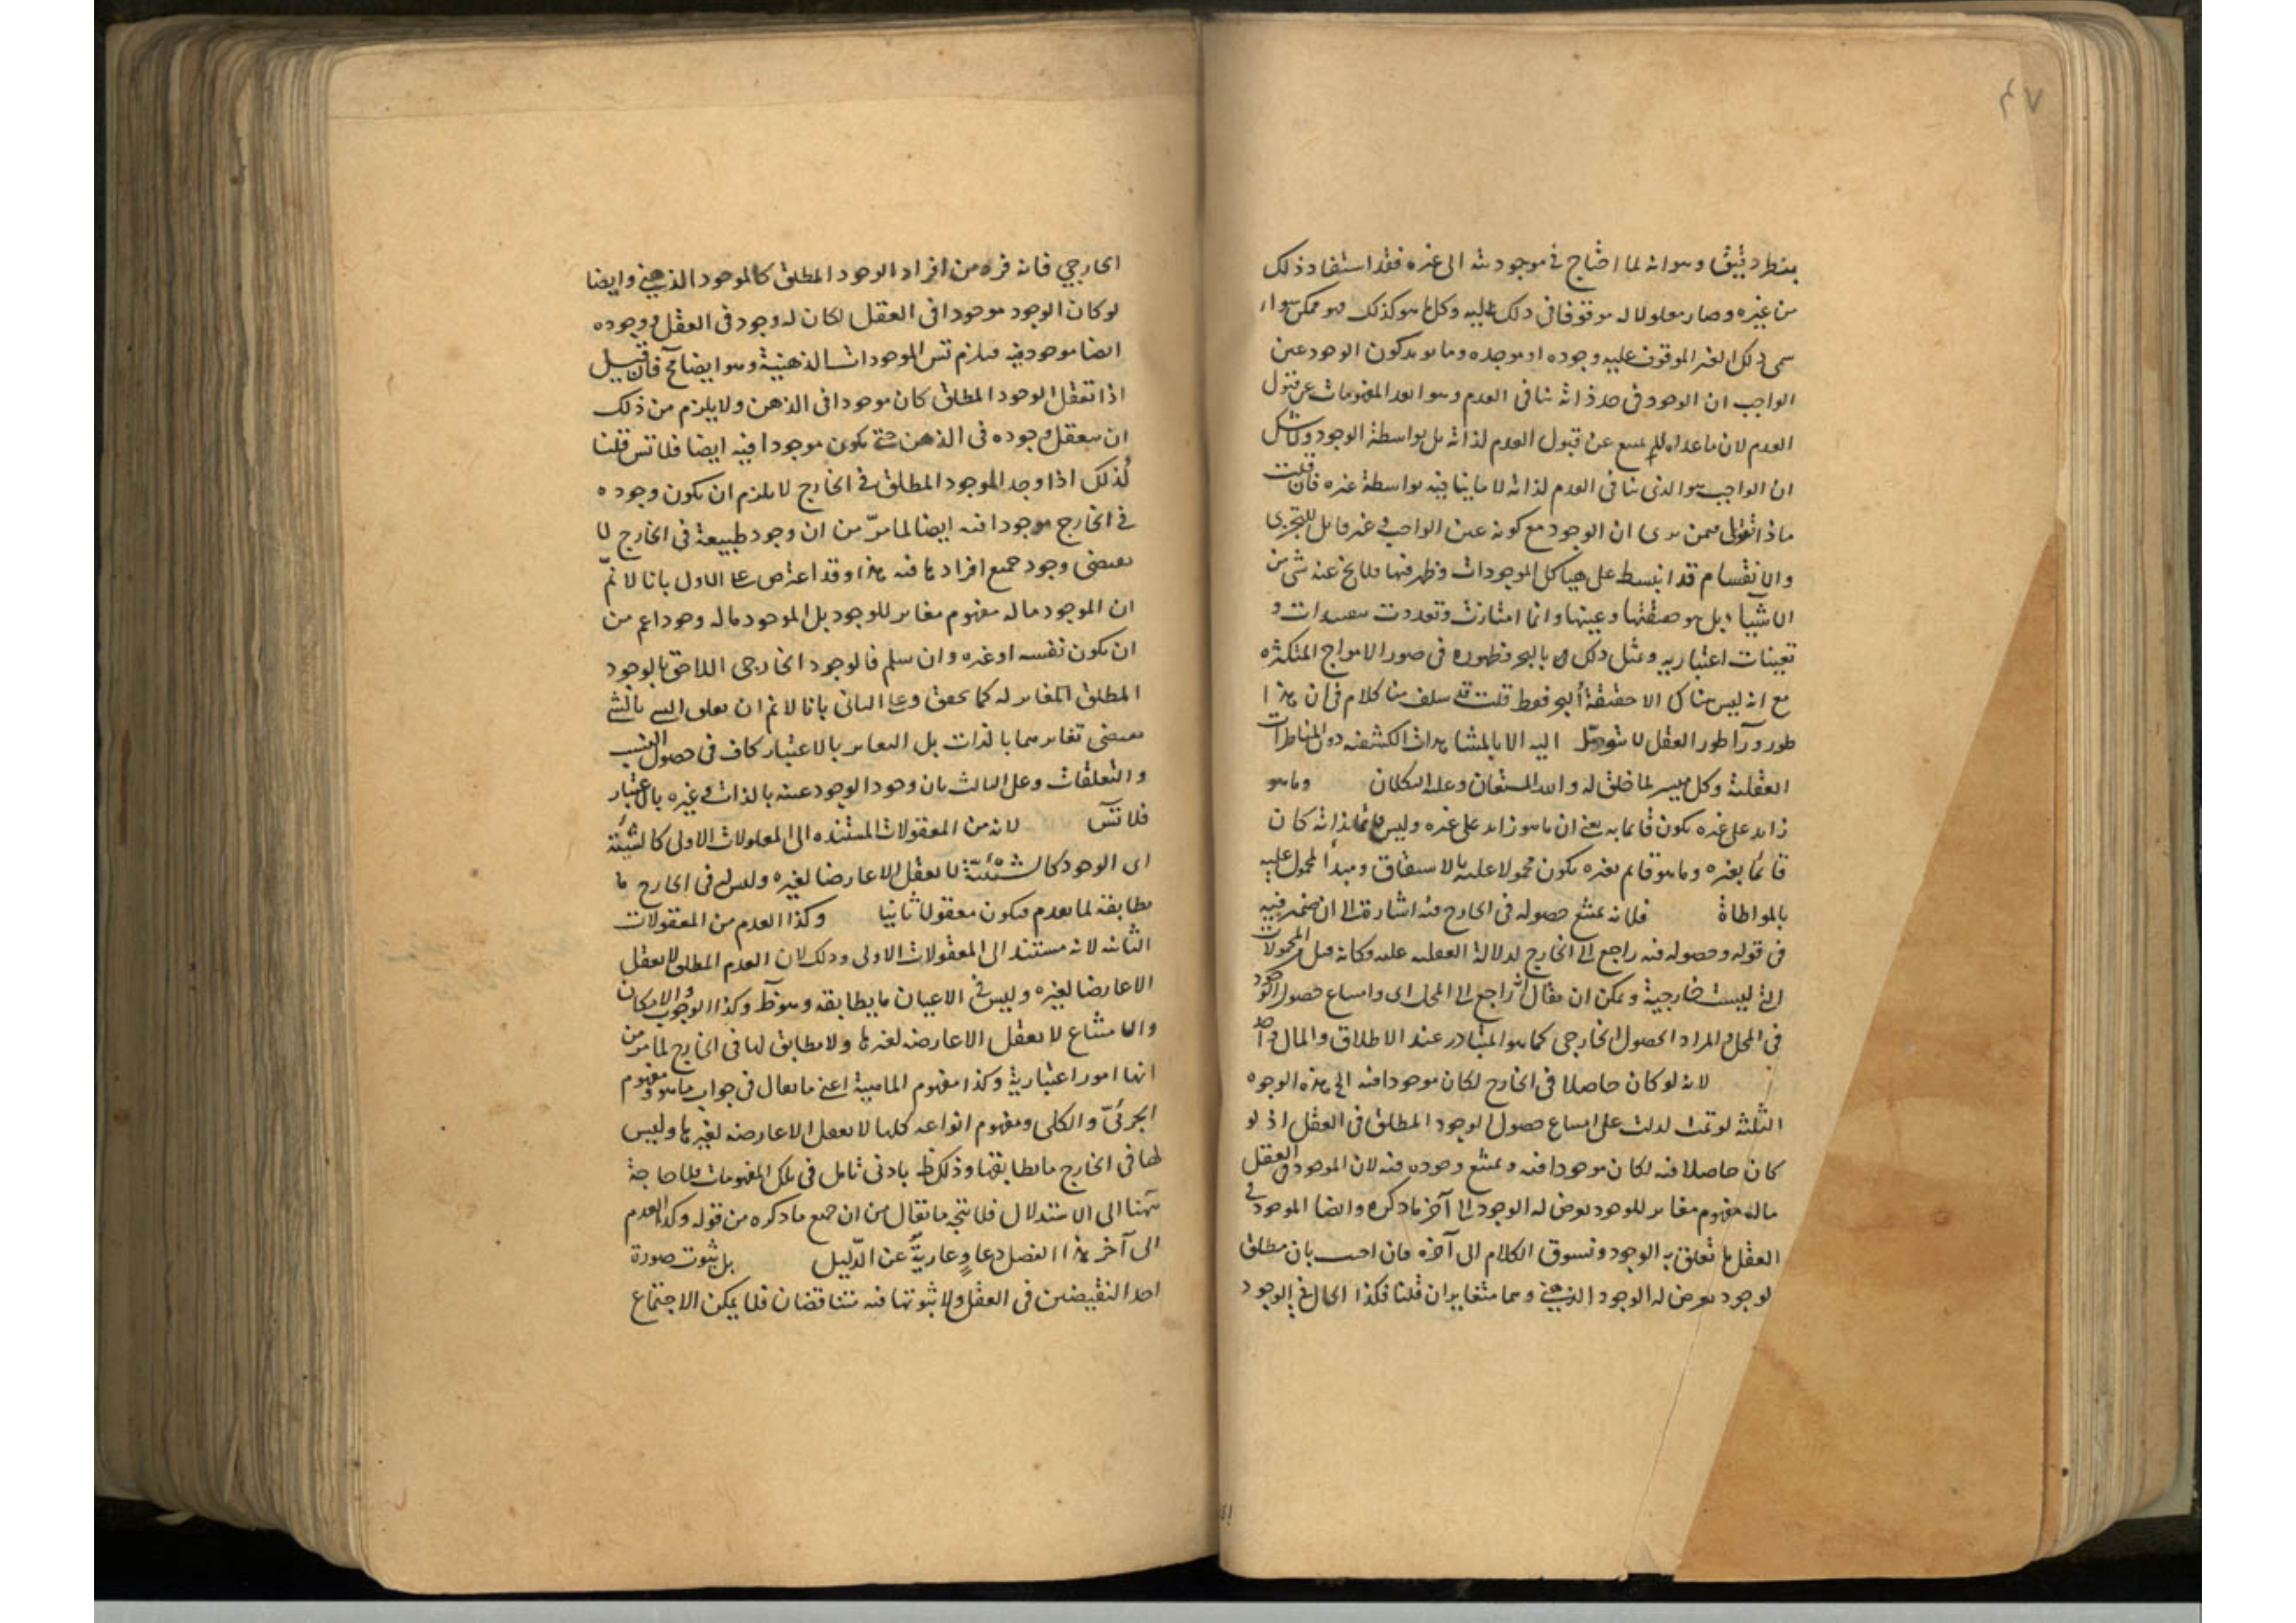 ٤٧
بنظر دقيق وهو انه لما احتاج في موجوديته الى غيره فقد استفاد ذلك
من غيره وصار معلولا له موقوفا في ذلك عليه وكل ما هو كذلك فهو ممكن سواء
سمى ذلك الغير الموقوف عليه وجوده او موجده ومما يؤيد كون الوجود عين
الواجب ان الوجود في حد ذاته ينافى العدم وهو ابعد المفهومات عن قبول
العدم لان ما عداه لم يمتنع عن قبول العدم لذاته بل بواسطة الوجود ولا شك
ان الواجب هو الذى ينافى العدم لذاته لا ما ينافيه بواسطة غيره فان قلت
ماذا تقول فيمن يرى ان الوجود مع كونه عين الواجب وغير قابل للتجزى
والانقسام قد انبسط على هياكل الموجودات وظهر فيها فلا يخ عنه شى من
الاشياء بل هو حقيقتها وعينها وانما امتازت وتعددت بتقيدات و
تعينات اعتباريه ومثل ذلك بالبحر وظهوره فى صور الامواج المتكثره
مع انه ليس هناك الا حقيقة البحر فقط قلت قد سلف منا كلام في ان هذا
طور ورآ طور العقل لا يتوصل اليه الا بالمشاهدات الكشفيه دون المناظرات
العقلية وكل ميسر لما خلق له والله المستعان وعليه التكلان وما هو
زايد على غيره يكون قايما به يعني ان ما هو زايد على غيره وليس قايما بذاته كان
قائما بغيره وما هو قايم بغيره يكون محمولا عليه بالاشتقاق ومبدأ المحمول عليه
بالمواطاة فلانه يمتنع حصوله فى الخارج فيه اشارة الى ان ضمير فيه
فى قوله وحصوله فيه راجع الى الخارج لدلالة العقليه عليه وكانه قيل المحمولات
التى ليست خارجية ويمكن ان يقال انه راجع الى المحل اى وامتناع حصول الوجود
فى المحل والمراد الحصول الخارجى كما هو المتبادر عند الاطلاق والمال واحد
لانه لو كان حاصلا فى الخارج لكان موجودا فيه الخ هذه الوجوه
الثلثه لو تمت لدلت على امتناع حصول الوجود المطلق فى العقل اذ لو
كان حاصلا فيه لكان موجودا فيه ويمتنع وجوده فيه لان الموجود فى العقل
ماله مفهوم مغاير للوجود يعرض له الوجود الى آخر ما ذكره وايضا الموجود في
العقل ما تعلق به الوجود ونسوق الكلام الى آخره فان اجيب بان مطلق
الوجود يعرض له الوجود الذهني وهما متغايران قلنا فكذا الحال في الوجود
الخارجي فانه فرد من افراد الوجود المطلق كالموجود الذهني وايضا
لو كان الوجود موجودا فى العقل لكان له وجود فى العقل ووجوده
ايضا موجود فيه فيلزم تس الموجودات الذهنية وهو ايضا مح فان قيل
اذا تعقل الوجود المطلق كان موجودا فى الذهن ولا يلزم من ذلك
ان يتعقل وجوده فى الذهن حتى يكون موجودا فيه ايضا فلا تس قلنا
كذلك اذا وجد الموجود المطلق في الخارج لا يلزم ان يكون وجوده
في الخارج موجودا فيه ايضا لما مرّ من ان وجود طبيعة فى الخارج لا
يقتضى وجود جميع افرادها فيه هذا وقد اعترض على الاول بانا لا نم
ان الموجود ماله مفهوم مغاير للوجود بل الموجود ماله وجود اعم من
ان يكون نفسه او غيره وان سلم فالوجود الخارجى اللاحق بالوجود
المطلق المغاير له كما تحقق وعلى الثانى بانا لا نم ان تعلق الشى بالشى
يقتضى تغايرهما بالذات بل التغاير بالاعتبار كاف فى حصول النسب
والتعلقات وعلى الثالث بان وجود الوجود عينه بالذات وغيره بالاعتبار
فلا تس لانه من المعقولات المستنده الى المعلولات الاولى كالشيئية
اى الوجود كالشيئية لا يعقل الا عارضا لغيره وليس فى الخارج ما
يطابقه لما تقدم فيكون معقولا ثانيا وكذا العدم من المعقولات
الثانيه لانه مستند الى المعقولات الاولى وذلك لان العدم المطلق لا يعقل
الا عارضا لغيره وليس في الاعيان ما يطابقه وهو ظ وكذا الوجوب والامكان
والامتناع لا يعقل الا عارضه لغيرها ولا مطابق لها فى الخارج لما مر من
انها امور اعتبارية وكذا مفهوم الماهية اعنى ما يقال فى جواب ما هو ومفهوم
الجزئىّ والكلى ومفهوم انواعه كلها لا تعقل الا عارضه لغيرها وليس
لها فى الخارج ما يطابقها وذلك ظ بادنى تامل فى تلك المفهومات فلا حاجة
ههنا الى الاستدلال فلا يتجه ما يقال من ان جميع ما ذكره من قوله وكذا العدم
الى آخر هذا الفصل دعاوٍ عاريةٌ عن الدّليل بل ثبوت صورة
احد النقيضين فى العقل ولا ثبوتها فيه متناقضان فلا يمكن الاجتماع